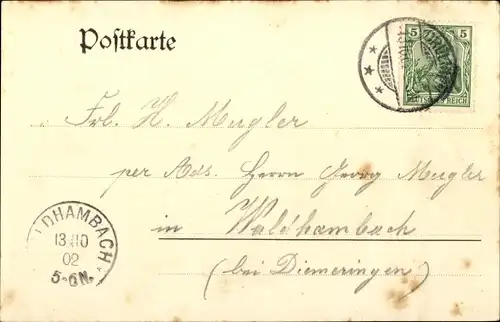 Postkarte
5 5
DEUTSCHES REICH
Frl. H. Mugler
per Ads. Herrn Georg Mugler
in Waldhambach
(bei Diemeringen)
LDHAMBACH
13 10
02
5-6N.